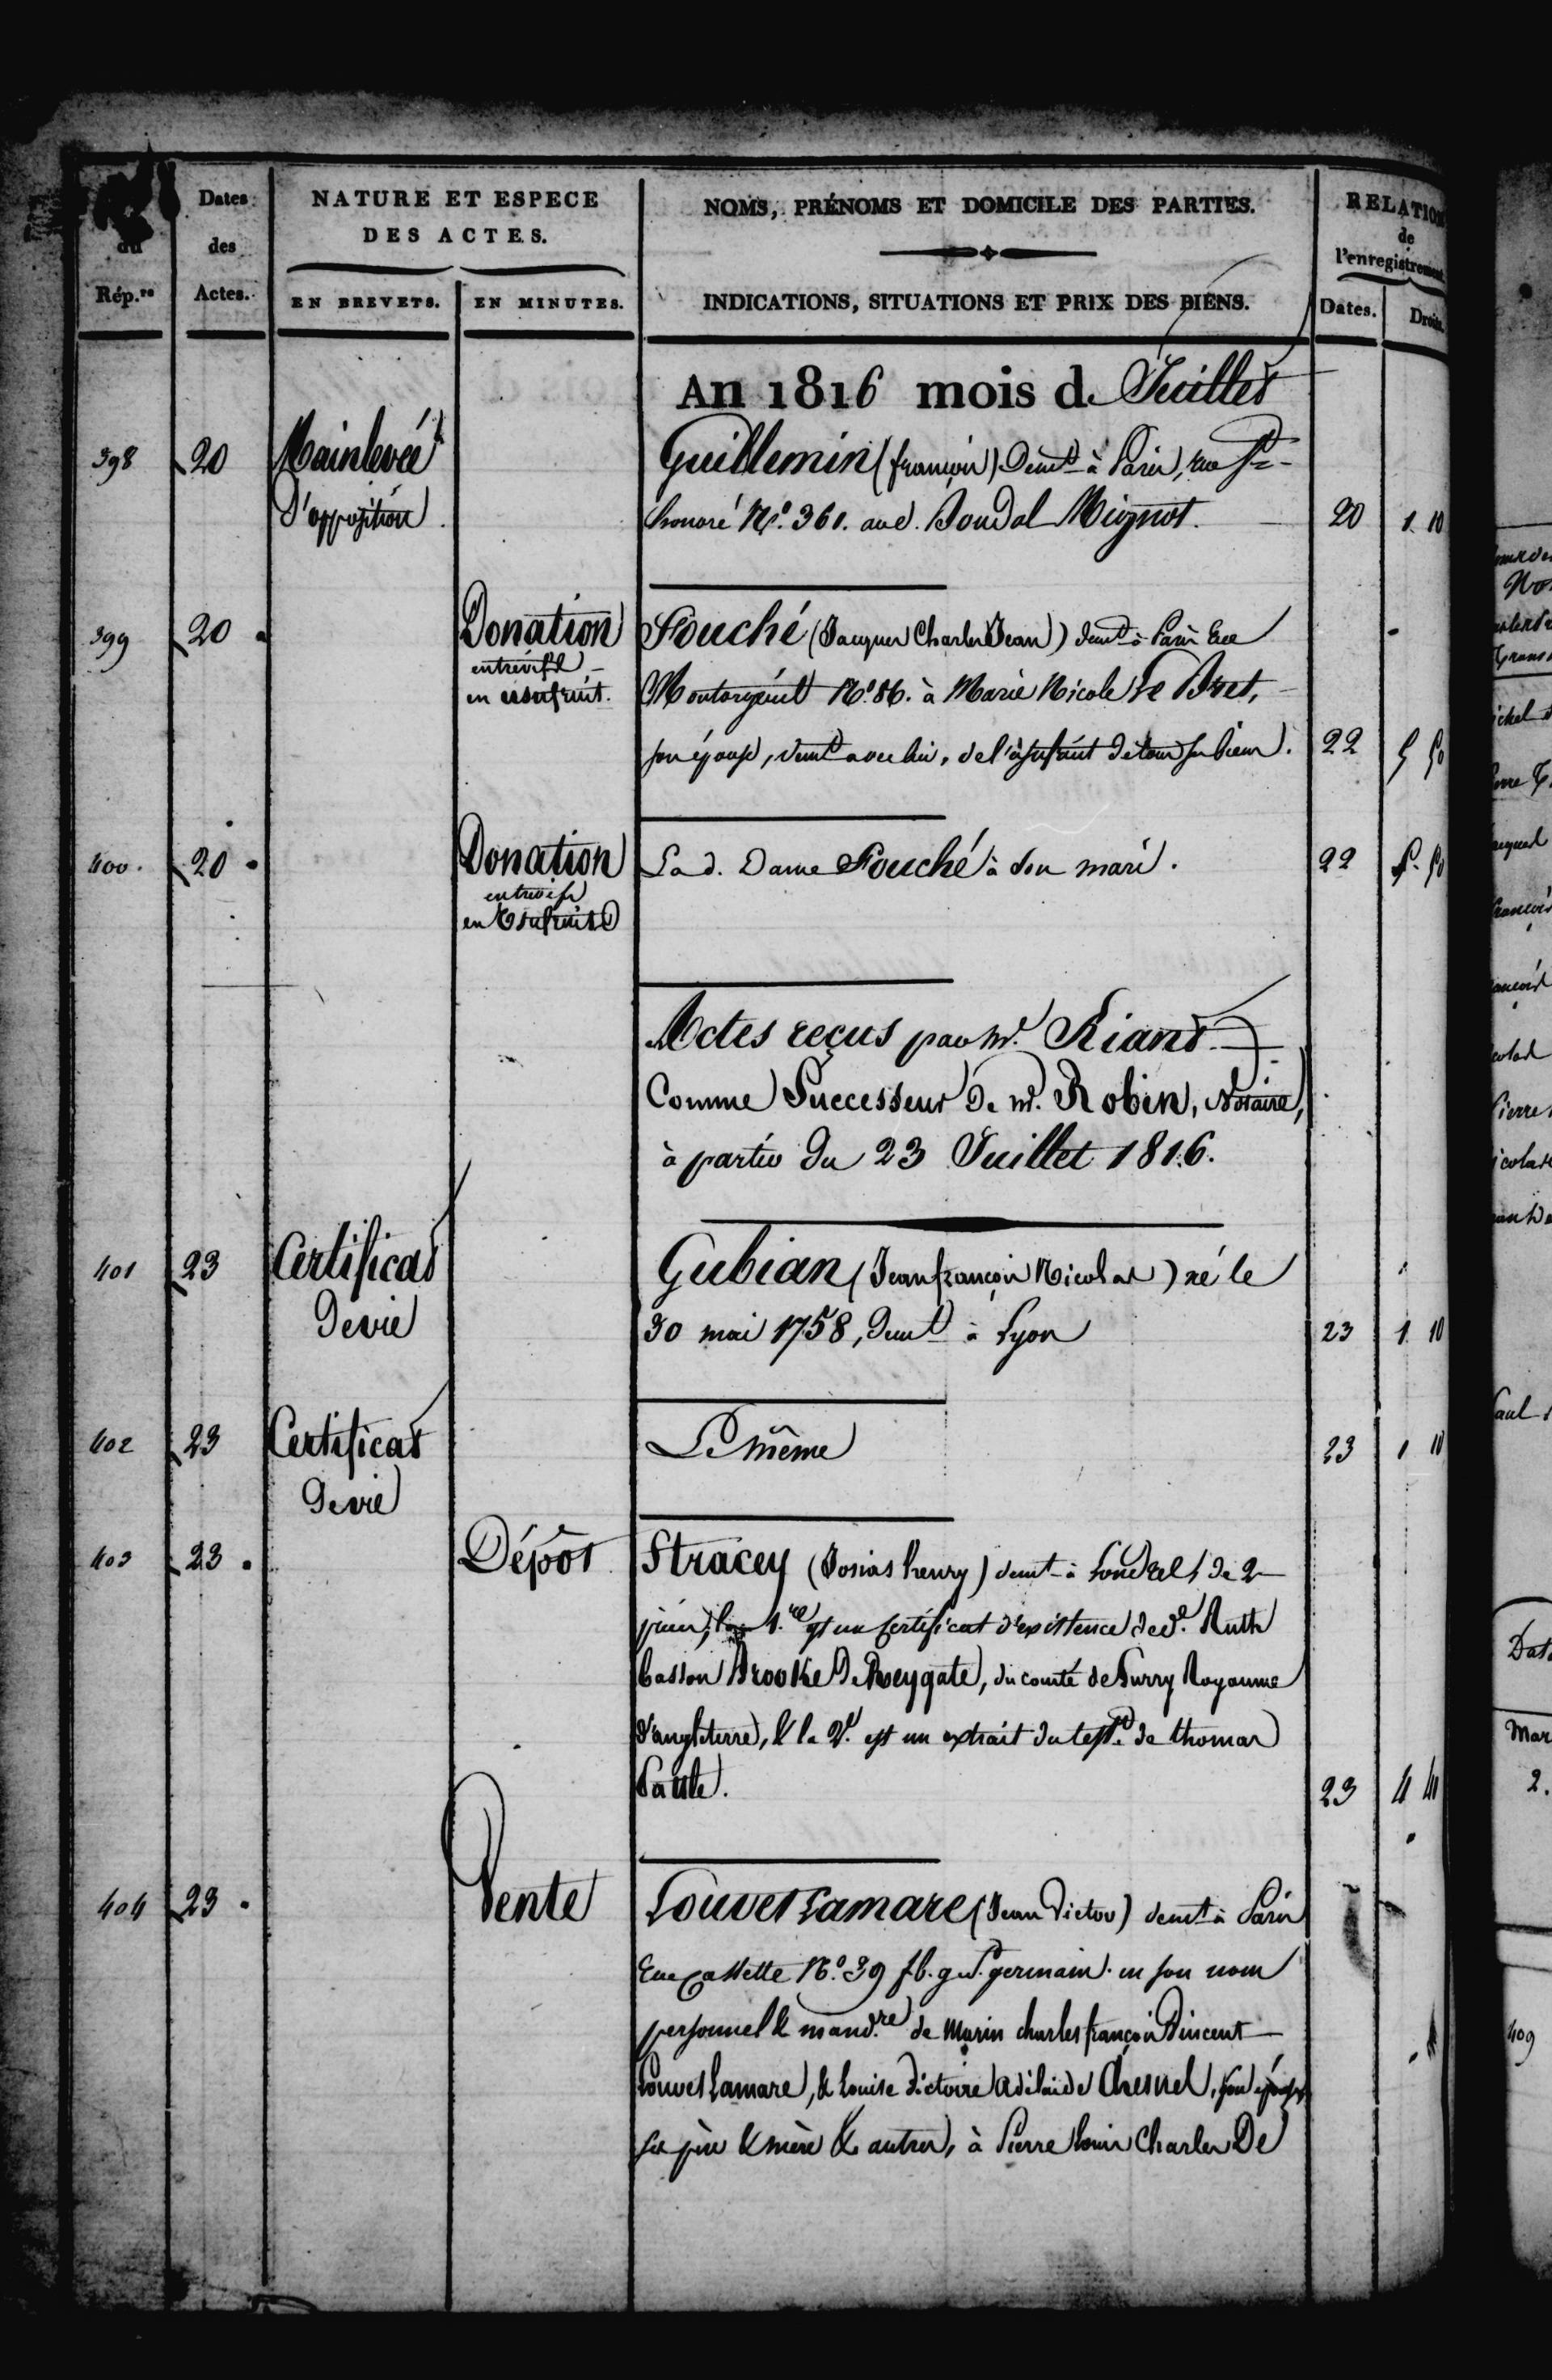 du Rép.re
Dates des Actes.
NATURE ET ESPECE
DES ACTES.
EN BREVETS.
EN MINUTES.
NOMS, PRÉNOMS ET DOMICILE DES PARTIES.
INDICATIONS, SITUATIONS ET PRIX DES BIENS.
RELATION
de
l'enregistrement
Dates.
Droits.
An 1816 mois de Juillet
398 20 Mainlevée Guillemin (françois) demt à Paris, rue St
d'opposition. honoré No. 361. aud. Mignot. 20 1 10
399 20 Donation Fouché (Jacques Charles Jean) demt à Paris Rue
entrevifs
en usufruit. Montorgueil No. 86. à Marie Nicole Le Bret,
son épouse, demt avec lui, de l'usufruit de tous ses biens. 22 5 50
400. 20 Donation La d. Dame Fouché à son mari. 22 5 50
entrevifs
en Usufruit
Actes reçus par Mr. Riant
Comme Successeur de Mr. Robin, Notaire,
à partir du 23 Juillet 1816.
401 23 Certificat Gubian (Jean françois Nicolas) né le
de vie 30 mai 1758, demt à Lyon 23 1 10
402 23 Certificat Le même 23 1 10
de vie
403 23 Dépôt Stracey (Josias henry) demt à Londres de 2
1.re est un Certificat d'existence de de. Ruth
Casson Brooke de Reygate, du comté de Surry Royaume
d'angleterre, & la 2e. est un extrait du test. de thomas
23 4 40
404 23 Vente Louvet Lamare (Jean Victor) demt à Paris
Rue Cassette No. 39 fb. g St. germain. en son nom
personnel & mandre de Marin charles françois Vincent
Louvet Lamare, & Louise Victoire Adélaïde Chesnel, son épouse
ses père & mère & autres, à Pierre louis Charles De